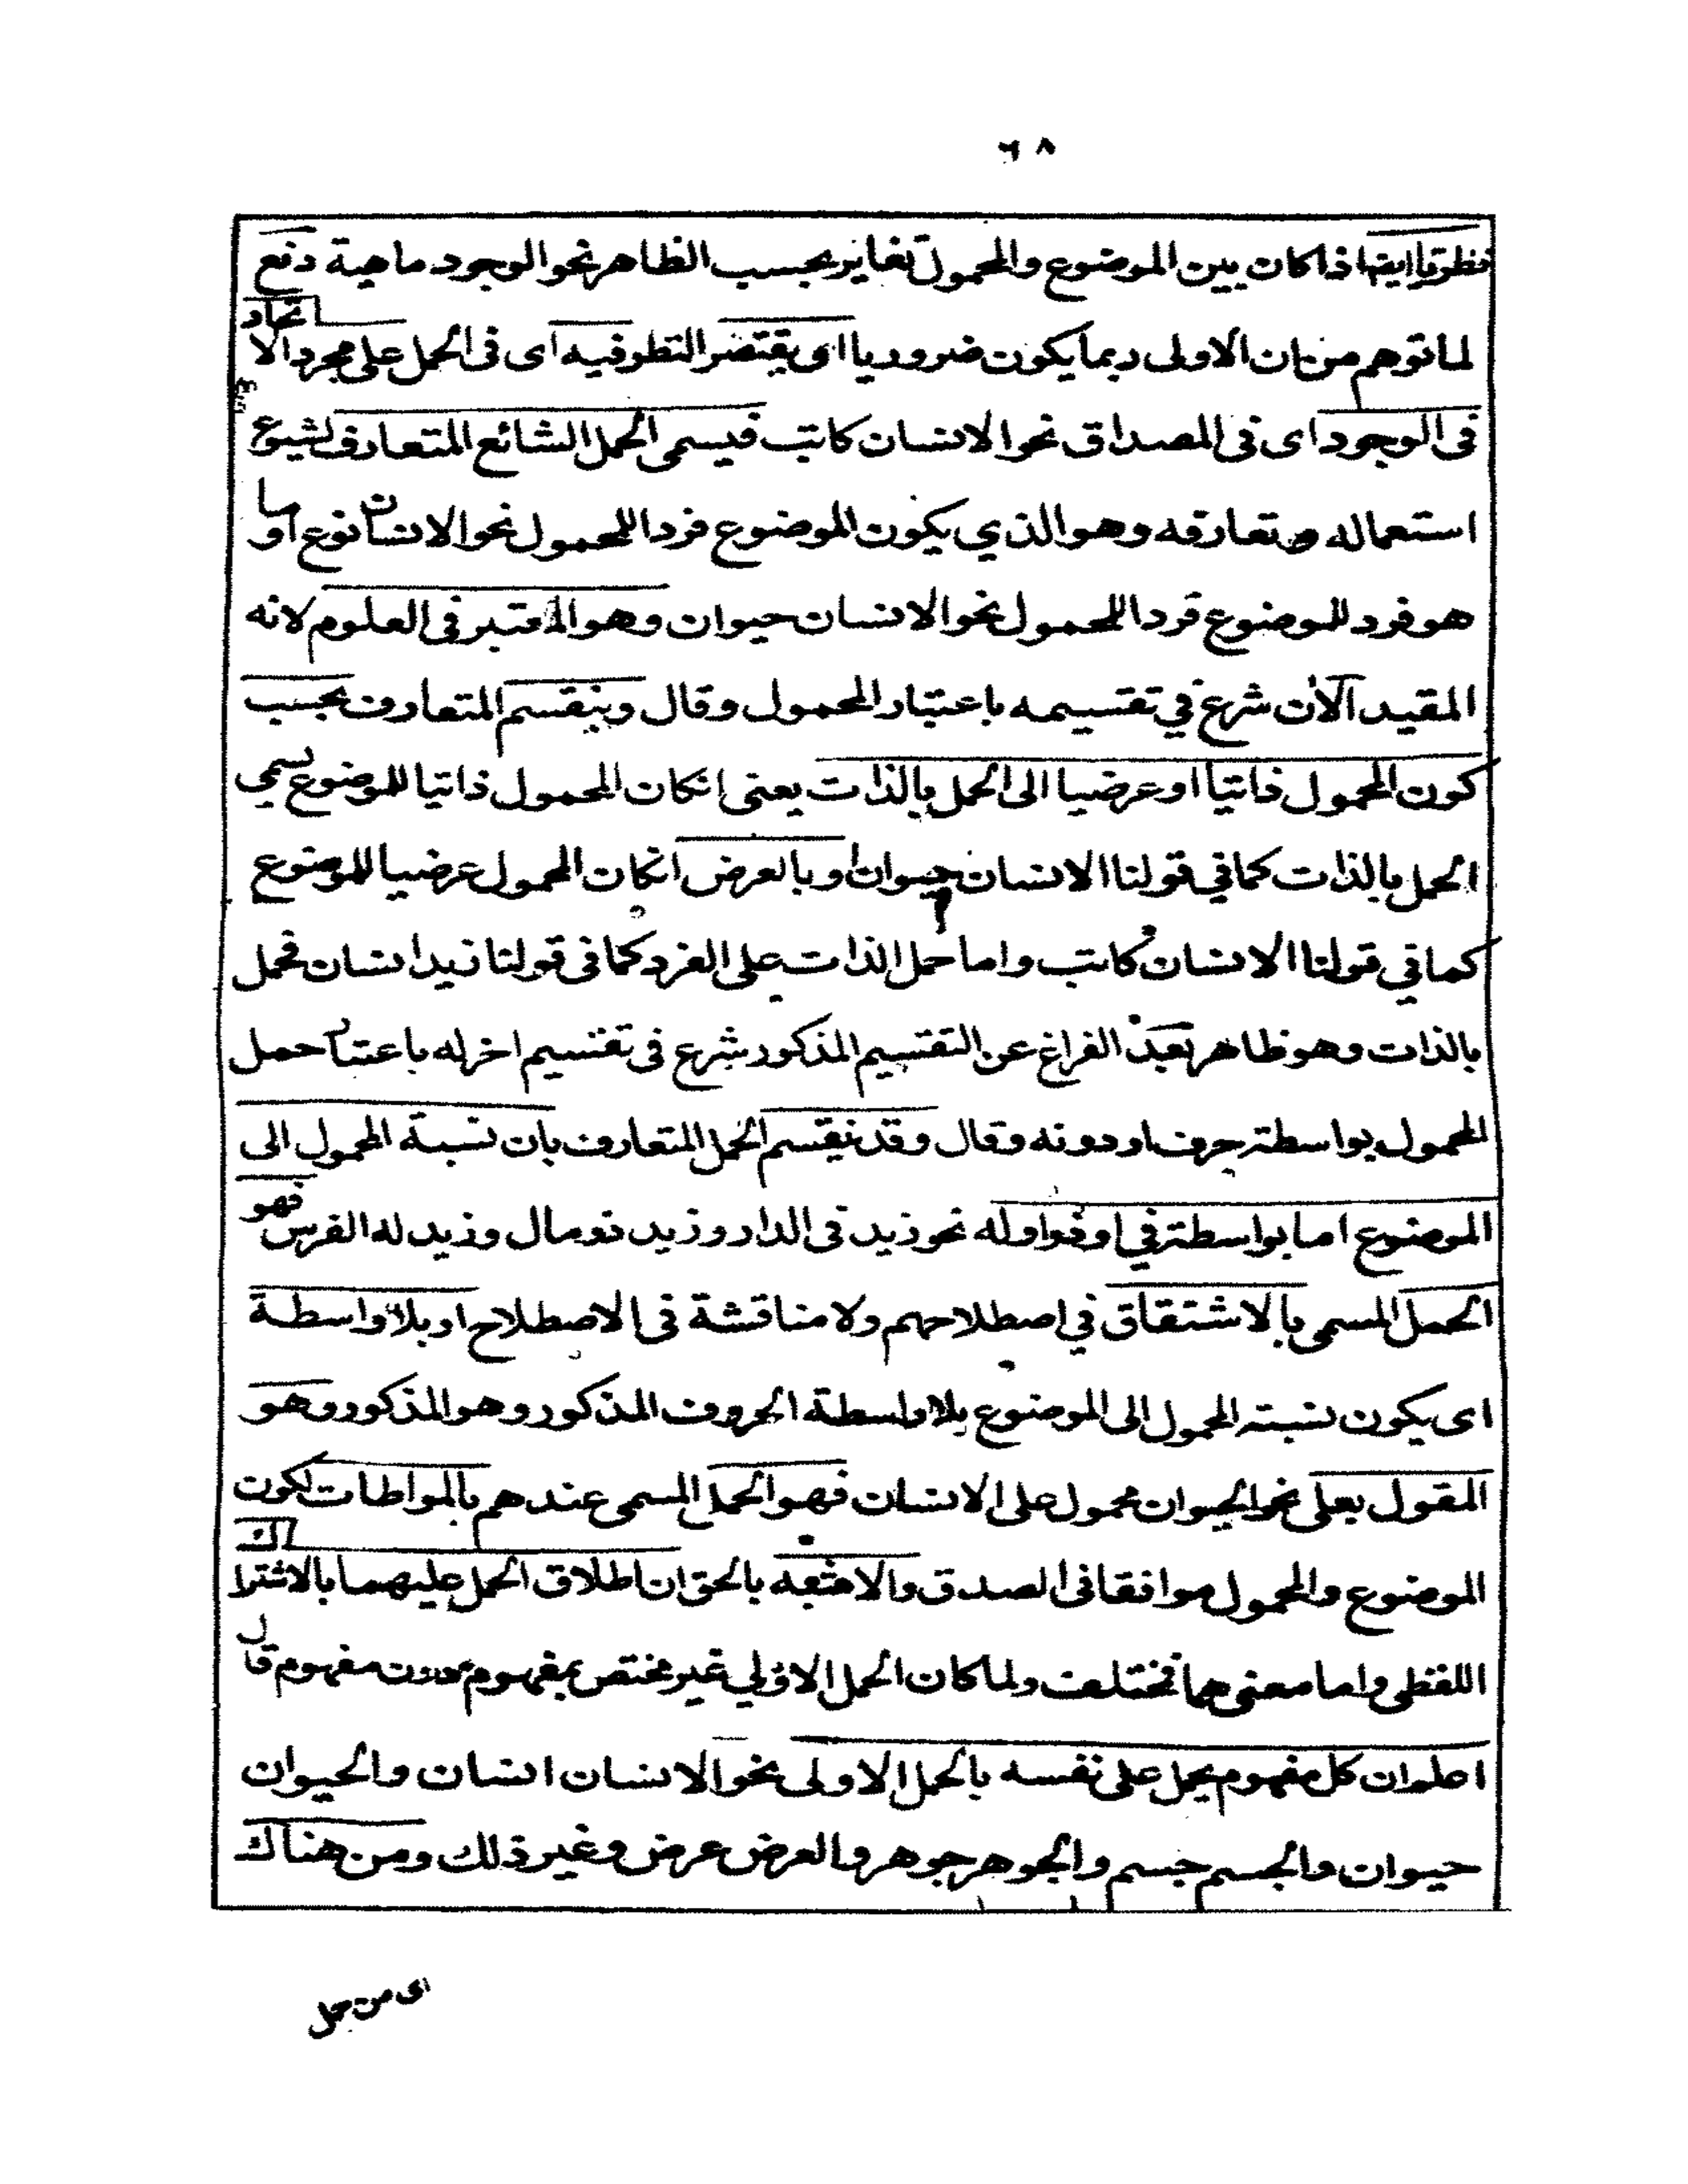 ٦٨
نظريا ايضا اذا كان بين الموضوع والمحمول تغاير بحسب الظاهر نحو الوجود ماهية دفع
لما توهم من ان الاولى ربما يكون ضروريا او يقتصر النظر فيه اى فى الحمل على مجرد الاتحاد
فى الوجود اى فى المصداق نحو الانسان كاتب فيسمى الحمل الشائع المتعارف لشيوع
استعماله وتعارفه وهو الذي يكون الموضوع فردا للمحمول نحو الانسان نوع او ما
هو فرد للموضوع فردا للمحمول نحو الانسان حيوان وهو المعتبر فى العلوم لانه
المقيد الآن شرع في تقسيمه باعتبار المحمول وقال وينقسم المتعارف بحسب
كون المحمول ذاتيا او عرضيا الى الحمل بالذات يعنى انكان المحمول ذاتيا للموضوع يسمي
الحمل بالذات كما في قولنا الانسان حيوان او بالعرض انكان المحمول عرضيا للموضوع
كما في قولنا الانسان كاتب واما حمل الذات على الفرد كما فى قولنا زيد انسان فحمل
بالذات وهو ظاهر بعد الفراغ عن التقسيم المذكور شرع فى تقسيم اخر له باعتبار حمل
المحمول بواسطة حرف او دونه وقال وقد ينقسم الحمل المتعارف بان نسبة المحمول الى
الموضوع اما بواسطة في او ذو او له نحو زيد فى الدار وزيد ذو مال وزيد له الفرس فهو
الحمل المسمى بالاشتقاق في اصطلاحهم ولا مناقشة فى الاصطلاح او بلا واسطة
اى يكون نسبته المحمول الى الموضوع بلا واسطة الحروف المذكور وهو المذكور وهو
المقول بعلى نحو الحيوان محمول على الانسان فهو الحمل المسمى عندهم بالمواطات لكون
الموضوع والمحمول موافقا فى الصدق والاشبه بالحق ان اطلاق الحمل عليهما بالاشتراك
اللفظى واما معنى هما فختلف ولما كان الحمل الاولي غير مختص بمفهوم دون مفهوم قال
اعلم ان كل مفهوم يحمل على نفسه بالحمل الاولى نحو الانسان انسان والحيوان
حيوان والجسم جسم والجوهر جوهر والعرض عرض وغير ذلك ومن هناك
اى من حمل